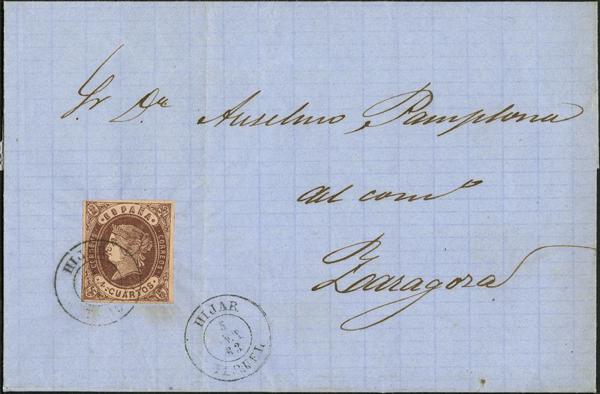 Sr. Dn. Anselmo Pamplona
del como
Zaragoza
ESPAÑA
CORREOS
4 CUARTOS
HIJAR
HIJAR
5
62
TERUEL